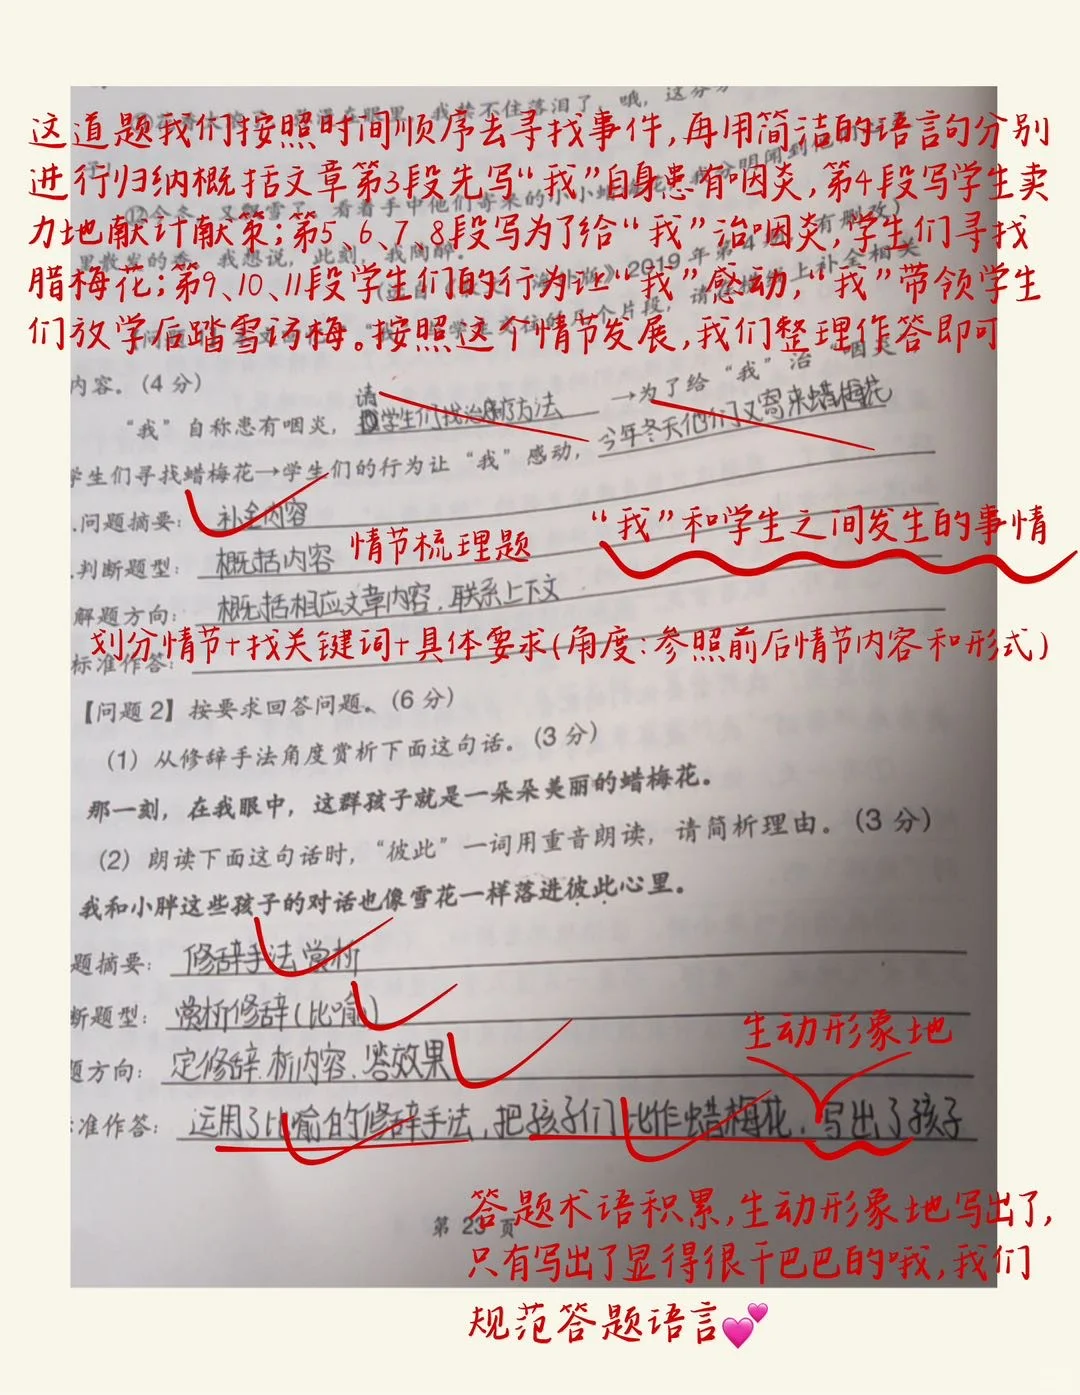 这道题我们按照时间顺序去寻找事件,再用简洁的语言句分别
进行归纳概括文章第3段先写“我”自身患有咽炎,第4段写学生卖
力地献计献策;第5、6、7、8段写为了给“我”治咽炎,学生们寻找
腊梅花;第9、10、11段学生们的行为让“我”感动,“我”带领学生
们放学后踏雪访梅。按照这个情节发展,我们整理作答即可
内容。(4分)
“我”自称患有咽炎,请学生们找治疗方法→为了给“我”治“咽炎”
学生们寻找蜡梅花→学生们的行为让“我”感动,今年冬天他们又寄来蜡梅花
问题摘要:补全内容
情节梳理题
“我”和学生之间发生的事情
判断题型:概括内容
解题方向:概括相应文章内容,联系上下文
划分情节+找关键词+具体要求(角度:参照前后情节内容和形式)
标准作答:
【问题2】按要求回答问题。(6分)
(1)从修辞手法角度赏析下面这句话。(3分)
那一刻,在我眼中,这群孩子就是一朵朵美丽的蜡梅花。
(2)朗读下面这句话时,“彼此”一词用重音朗读,请简析理由。(3分)
我和小胖这些孩子的对话也像雪花一样落进彼此心里。
题摘要:修辞手法赏析
断题型:赏析修辞(比喻)
题方向:定修辞.析内容.答效果
生动形象地
准作答:运用了比喻的修辞手法,把孩子们比作蜡梅花,写出了孩子
第23页
答题术语积累,生动形象地写出了,
只有写出了显得很干巴巴的哦,我们
规范答题语言💕